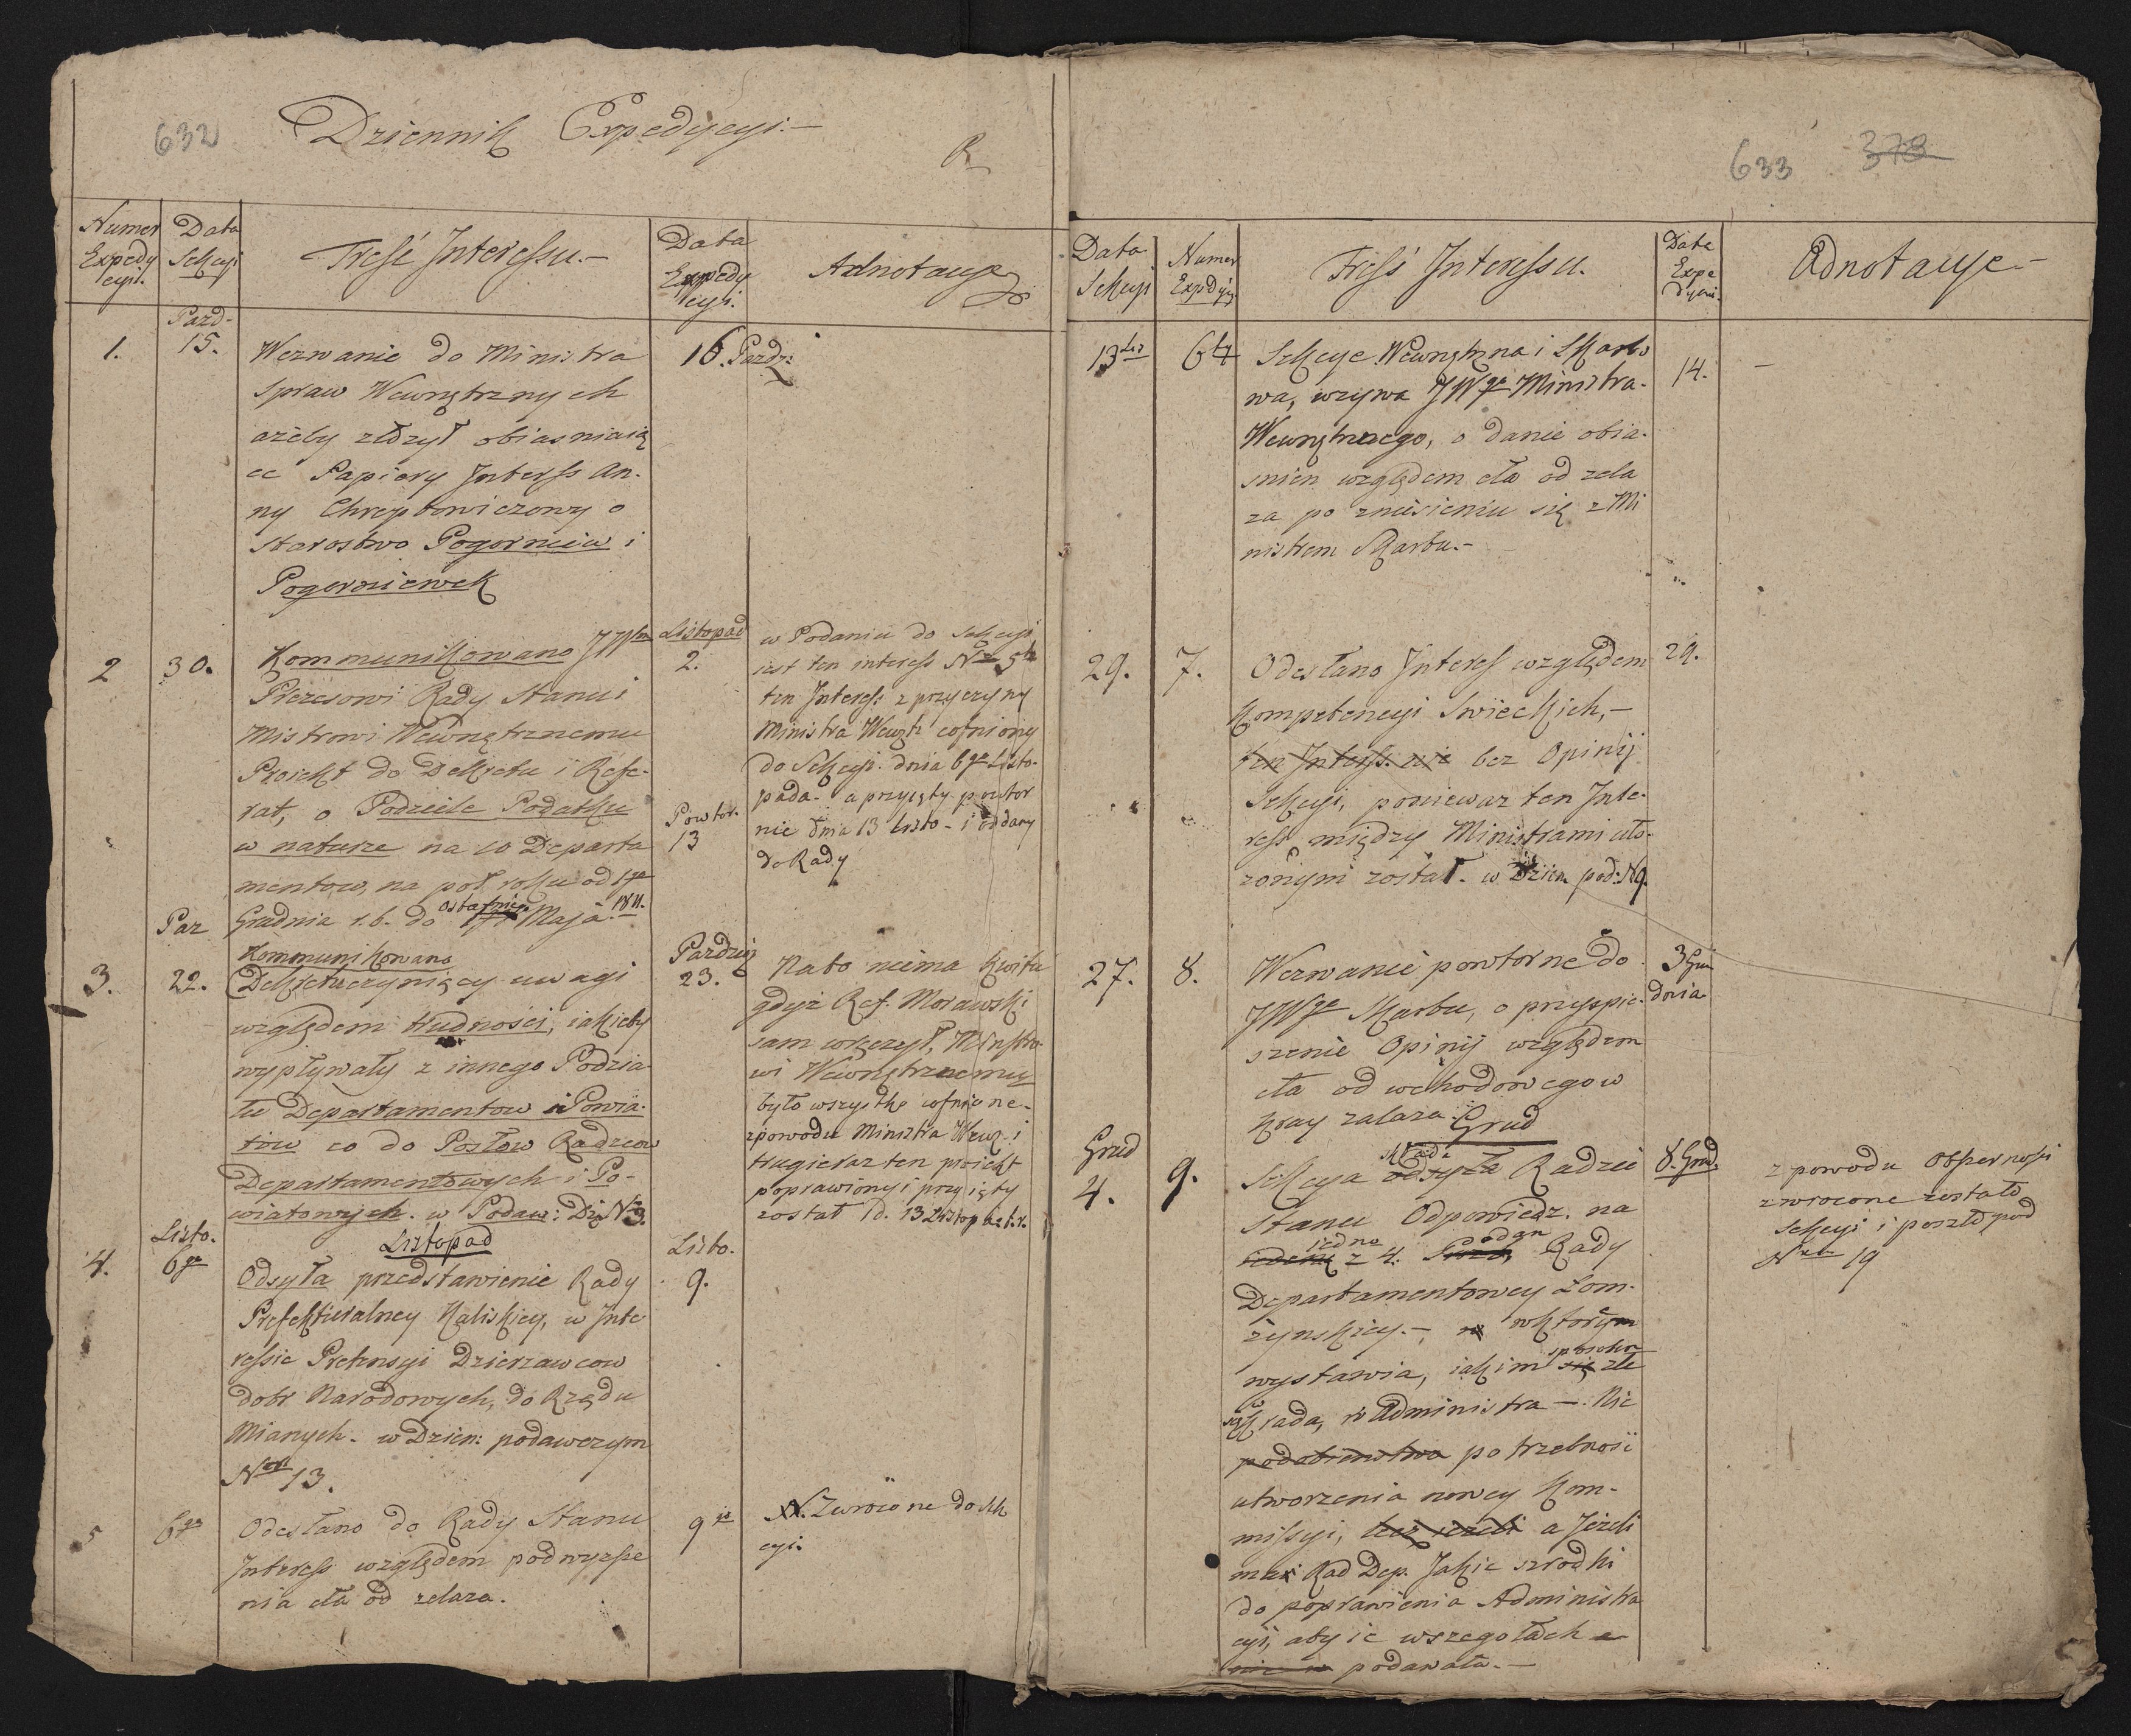 632
Dziennik Expedycyi.-
R
Numer Expedy cyi.
Data Sekcyi
Treść Interessu.-
Data Expedy cyi.
Adnotacye
1.
Pazd-
15.
Werwanie do Ministra
Spraw Wewnętrznych
ażeby złożył obiasniaią
ce Papiery Interss An-
ny Chreptowiczowy o
starostwo Pogorniew i
Pogorniewek
16. Pazdz:
2
30.
Kommunikowano JW
Prezesowi Rady Stanu i
Mistrowi Wewnętrznemu
Proiekt do Dekretu i Refe-
rat, o Podziele Podatku
w naturze na 10 Departa
mentow, na poł roku od 1go
Grudnia r.b. do ostatniego Maja 1811.
Listopad
2.
Powtor.
13
w Podaniu do Sekcyi
iest ten interess Nro 5ty
ten Interess z przyczyny
Ministra Wewzt: cofniony
do Sekcyi. dnia 6go Listo-
pada- a przyięty powtor
nie dnia 13 Listo- i oddany
do Rady
Paz
3.
22.
Kommunikowano
Dekretuczyniący uwagi
względem trudności, iakieby
wypływały z innego Podzia
łu Departamentow i Powia-
tów co do Posłow Radzcow
Departamentowych i Po-
wiatowych. w Podaw: Dz. N 3.
Pazdzier
23.
Na to niema kwitu
gdyż Ref. Morawski
sam wręczył, Ministro
wi Wewnętrznemu
było wszystko cofnione-
z powodu Ministra Wewz. i
drugi raz ten proiekt
poprawiony i przyięty
został 1d. 13 Listop. b.r.
Listopad
4.
Listo.
6go
Odsyła przedstawienie Rady
Prefekturalney Kaliskiey, w Inte
ressie Pretensyi Dzierzawcow
dobr Narodowych, do Rządu
Mianych. w Dzien: podawczym
Nro 13.
Listo.
9.
5
6go
Odesłano do Rady Stanu
Interess względem podwyższe
nia cła od zelaza.
9
N. Zwrócone do Sek
cyi.
633
378
Data Sekcyi
Numer Expdycyi
Treść Interessu.
Data Expe dycyi.
Adnotacye-
13 Lis
6ty
Sekcye Wewnętrzna i Skarbo
wa, wzywa JWgo Ministra
Wewnętrznego, o danie obia-
snien względem cła od zela
za po zniesieniu się z Mi
nistrem Skarbu.-
14.
-
29.
7.
Odesłano Interes względem
Kompetencyi Swieckich,-
ten Interss. nie bez Opinij
Sekcyi, ponieważ ten Inte-
ress między Ministrami uło-
zonym został. w Dzien pod: N 9.
29.
27.
8.
Werwanie powtorne do
JWgo Skarbu, o przyspie-
szenie Opinij względem
cła od wchodowego w
kray zalaza.
3 Gru
dnia
Grud
Grud
4.
9.
Sekcya składa odsyła Radzie
Stanu Odpowiedz. na
iedno z 4. Rady
Departamentowey Łom-
żynskiey.- w którym
wystawia, iakim sposobem się złe
zakrada, w Administra - Nie
podobienstwo potrzebnosi
utworzenia nowey Kom-
missyi, lecz jeżeli a Jeżeli
ma Rad Dep. Jakie srzodki
do poprawienia Administra
cyi, aby ie wszegołach
podawała.-
8. Grud
z powodu Obszernosi
zwrocone zostało
Sekcyi i poszło pod
Nrem 19